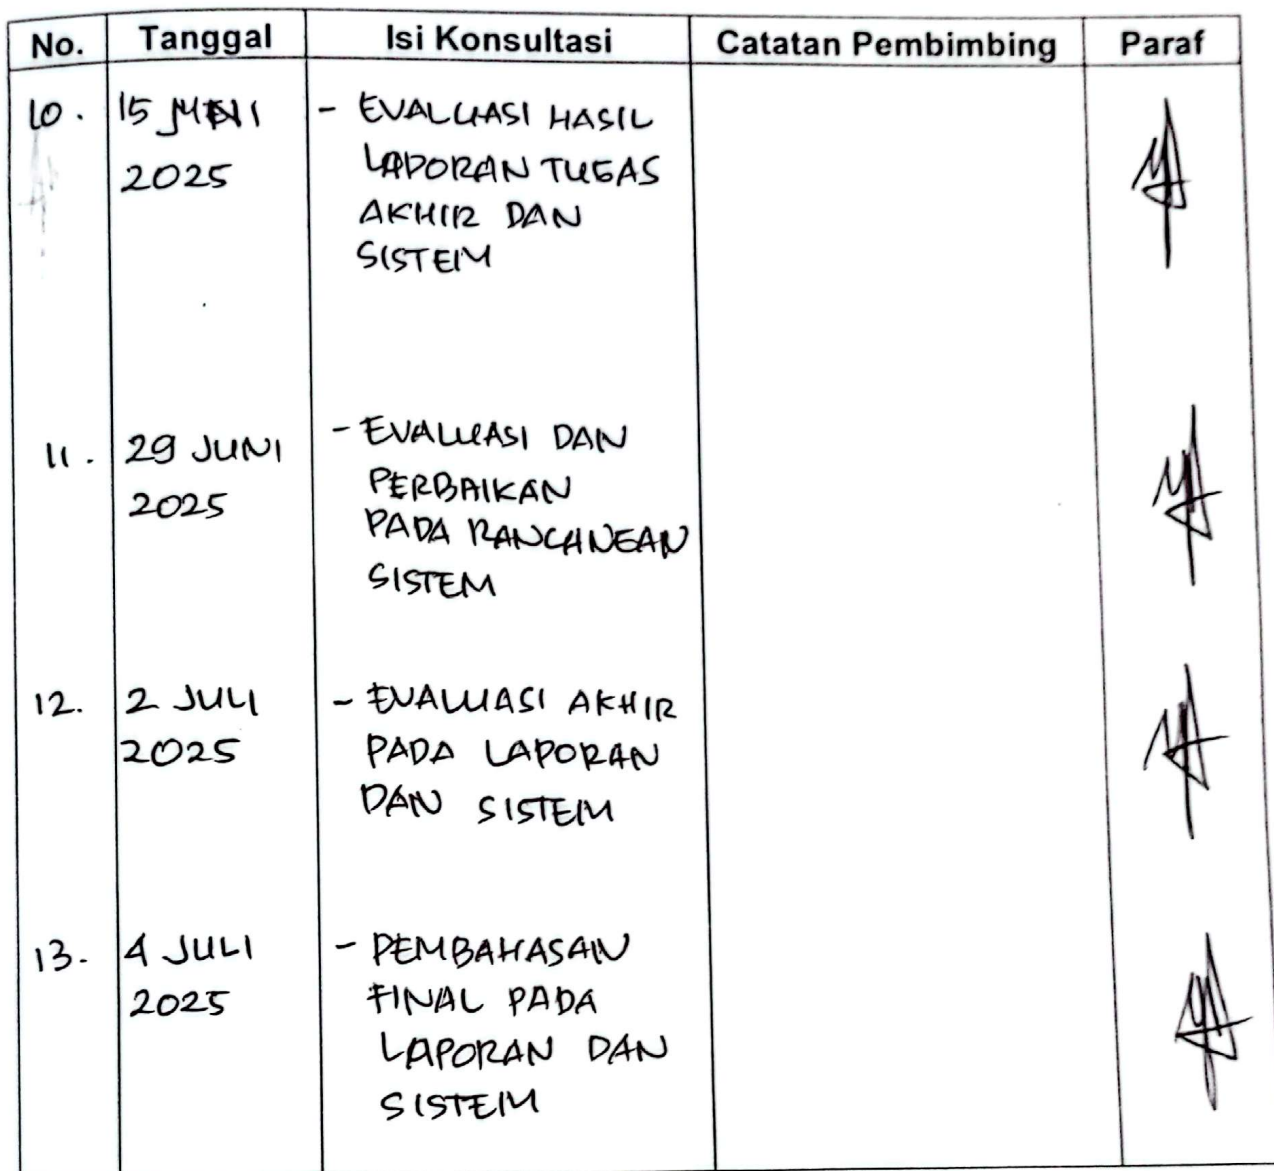 No. Tanggal Isi Konsultasi Catatan Pembimbing Paraf
10. 15 JUNI - EVALUASI HASIL
2025 LAPORAN TUGAS
AKHIR DAN
SISTEM
11. 29 JUNI - EVALUASI DAN
2025 PERBAIKAN
PADA RANCANGAN
SISTEM
12. 2 JULI - EVALUASI AKHIR
2025 PADA LAPORAN
DAN SISTEM
13. 4 JULI - PEMBAHASAN
2025 FINAL PADA
LAPORAN DAN
SISTEM